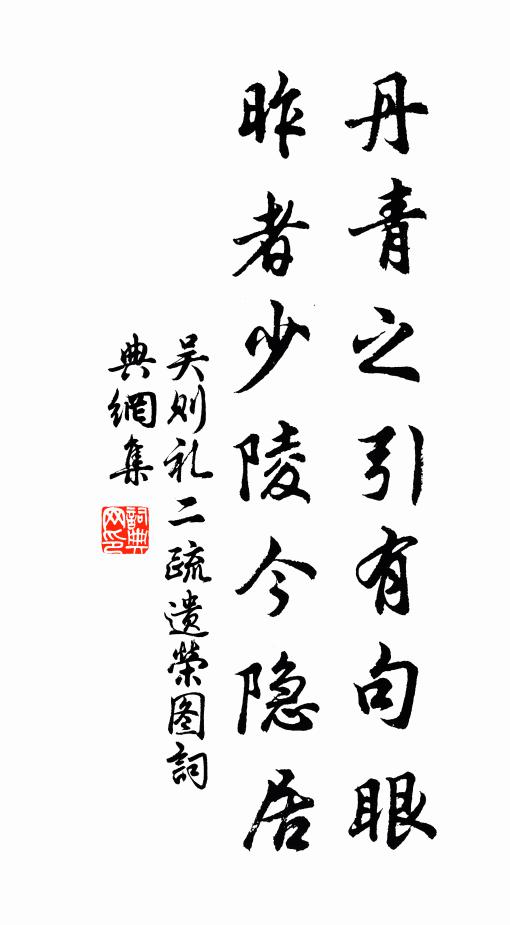 丹青之引有句眼
昨者少陵今隐居
吴则礼二疏遗荣图詞
典網集
詞典网印